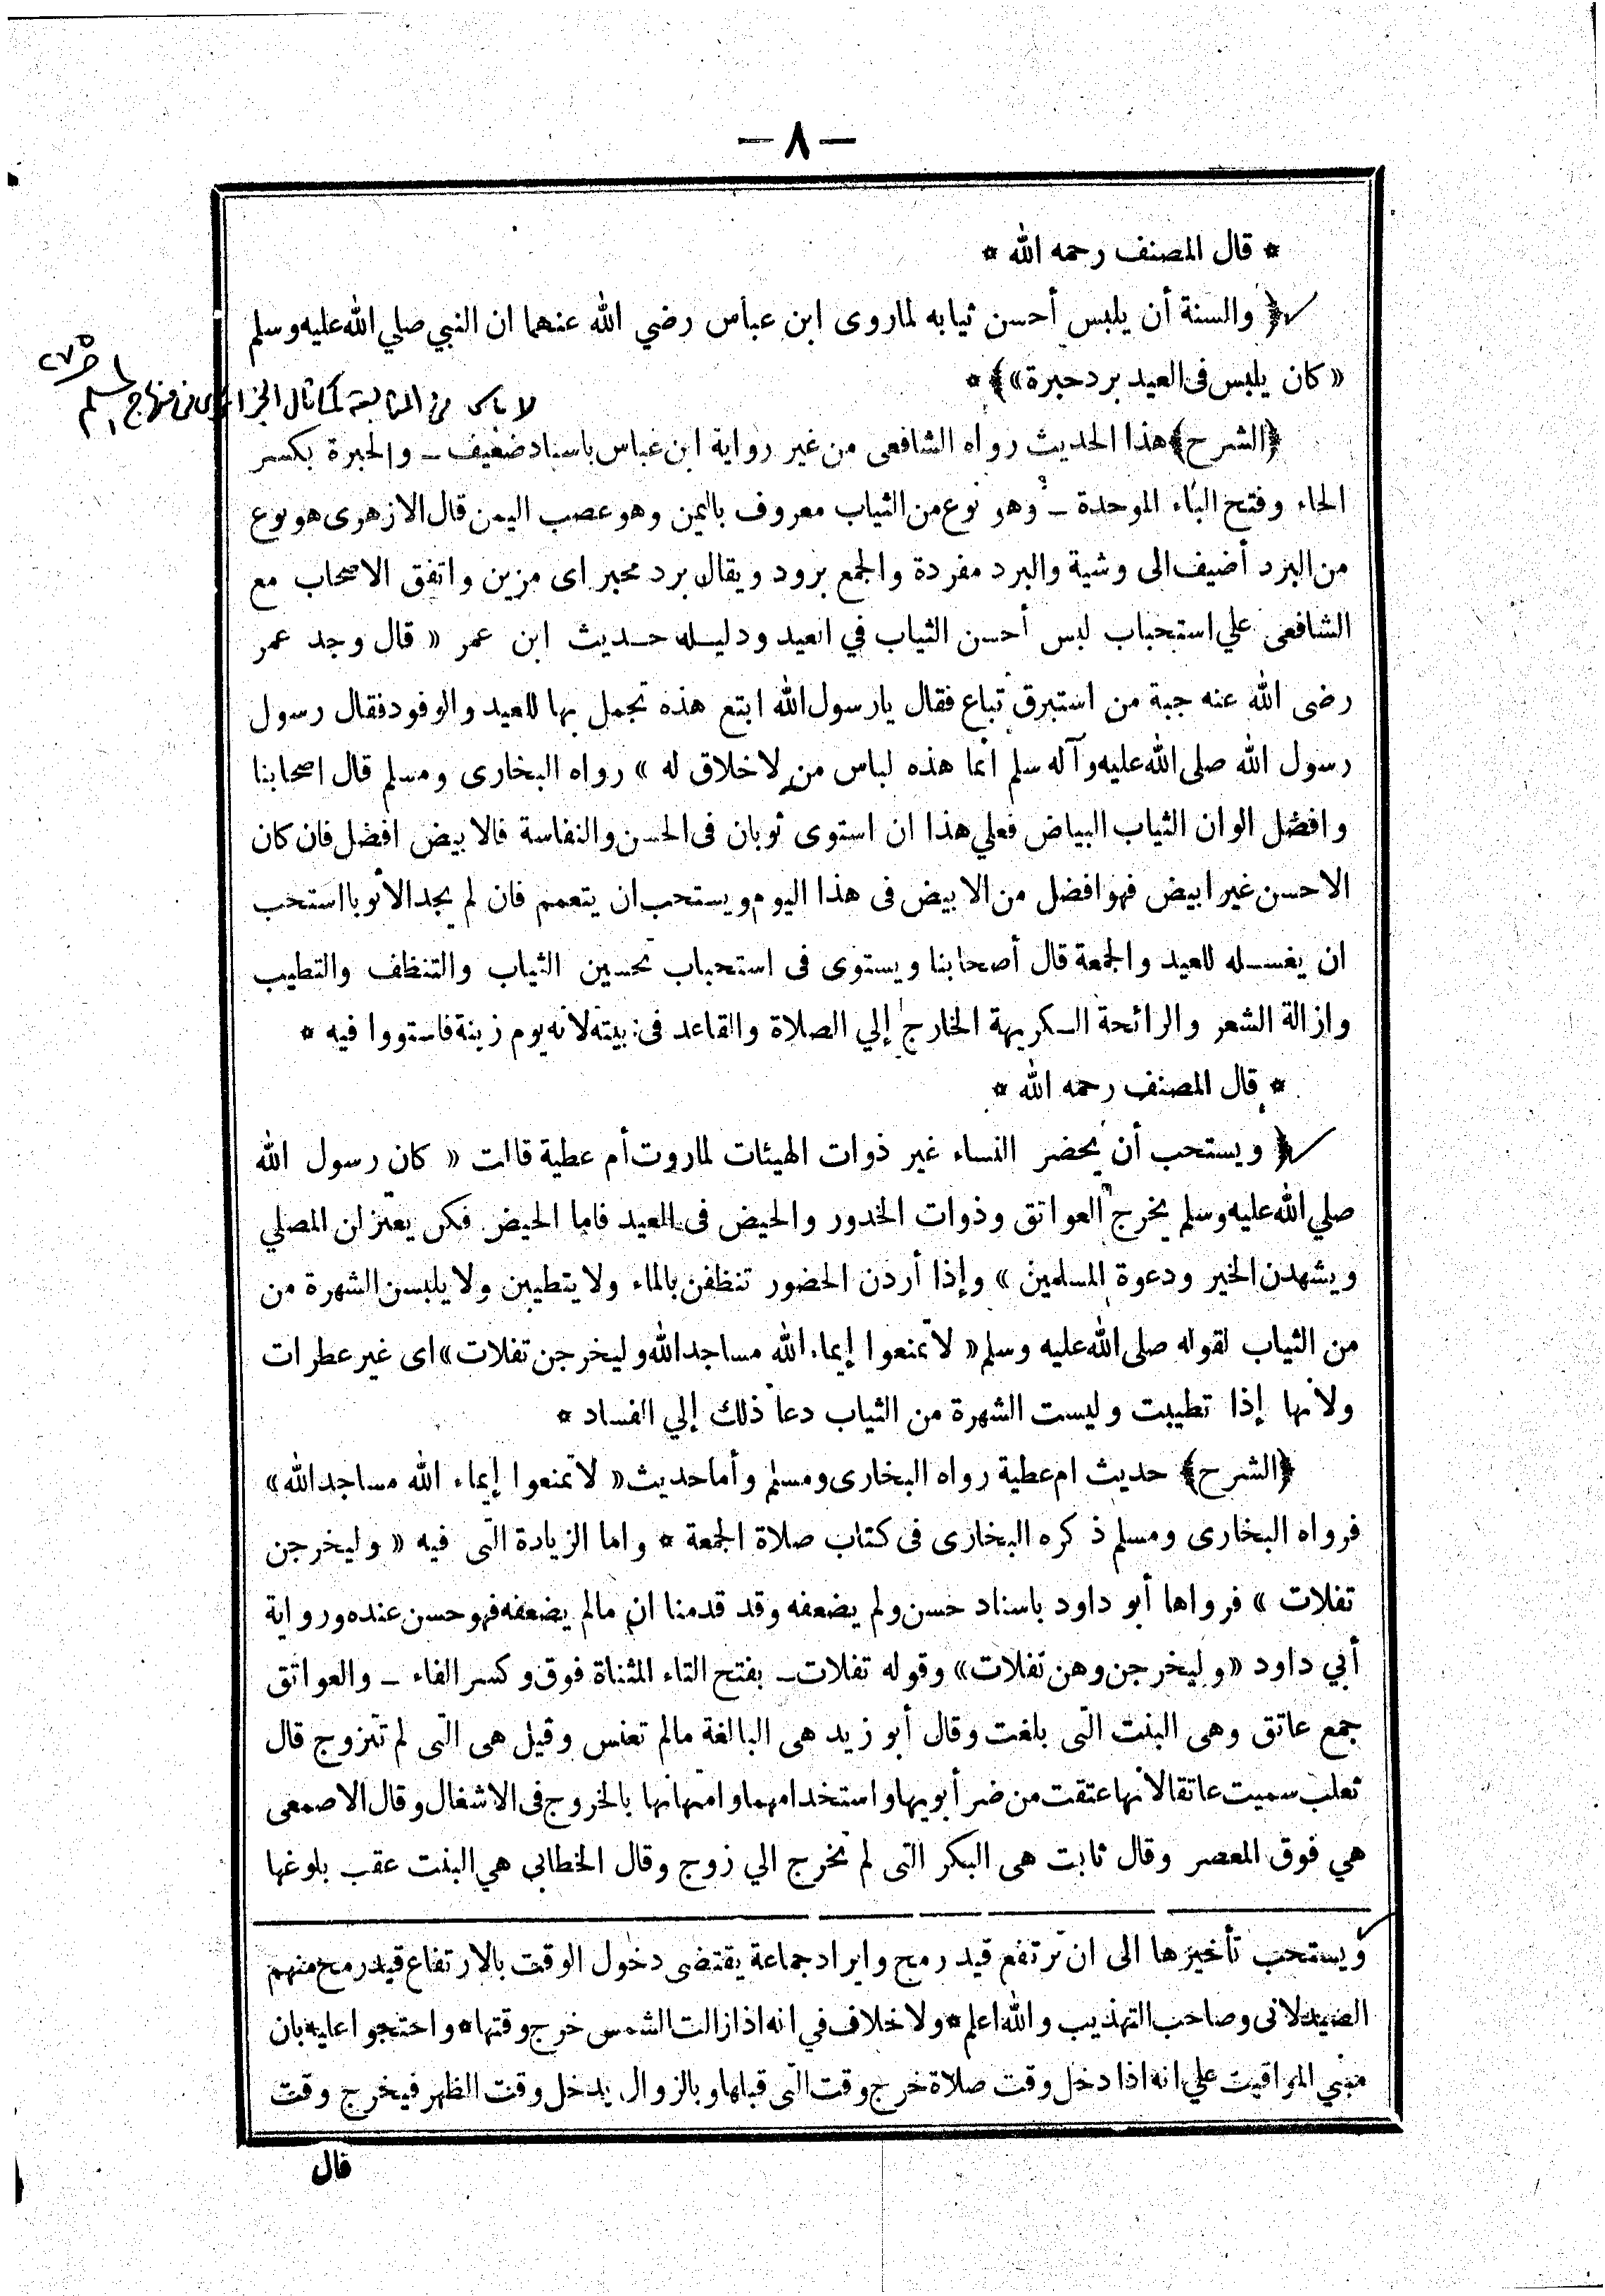 — ٨ —
* قال المصنف رحمه الله *
﴿ والسنة أن يلبس أحسن ثيابه لماروى ابن عباس رضي الله عنهما ان النبي صلي الله عليه وسلم
« كان يلبس فى العيد برد حبرة » ﴾ *
﴿الشرح﴾ هذا الحديث رواه الشافعى من غير رواية ابن عباس باسناد ضعيف ـ والحبرة بكسر
الحاء وفتح الباء الموحدة ـ وهو نوع من الثياب معروف باليمن وهو عصب اليمن قال الازهرى هو نوع
من البرد أضيف الى وشية والبرد مفردة والجمع برود ويقال برد محبر اى مزين واتفق الاصحاب مع
الشافعى علي استحباب لبس أحسن الثياب في العيد ودليله حديث ابن عمر « قال وجد عمر
رضى الله عنه جبة من استبرق تباع فقال يارسول الله ابتع هذه تجمل بها للعيد والوفود فقال رسول
رسول الله صلى الله عليه وآله سلم انما هذه لباس من لاخلاق له » رواه البخارى ومسلم قال اصحابنا
وافضل الوان الثياب البياض فعلي هذا ان استوى ثوبان فى الحسن والنفاسة فالابيض افضل فان كان
الاحسن غير ابيض فهو افضل من الابيض فى هذا اليوم ويستحب ان يتعمم فان لم يجد الاثوبا استحب
ان يغسله للعيد والجمعة قال أصحابنا ويستوى فى استحباب تحسين الثياب والتنظف والتطيب
وازالة الشعر والرائحة الكريهة الخارج إلي الصلاة والقاعد فى بيته لانه يوم زينة فاستووا فيه *
* قال المصنف رحمه الله *
﴿ ويستحب أن يحضر النساء غير ذوات الهيئات لماروت أم عطية قالت « كان رسول الله
صلي الله عليه وسلم يخرج العواتق وذوات الخدور والحيض فى العيد فاما الحيض فكن يعتزلن المصلي
ويشهدن الخير ودعوة المسلمين » وإذا أردن الحضور تنظفن بالماء ولايتطيبن ولايلبسن الشهرة من
من الثياب لقوله صلى الله عليه وسلم « لاتمنعوا إماء الله مساجد الله وليخرجن تفلات » اى غير عطرات
ولأنها إذا تطيبت ولبست الشهرة من الثياب دعا ذلك إلي الفساد *
﴿الشرح﴾ حديث ام عطية رواه البخارى ومسلم وأما حديث « لاتمنعوا إماء الله مساجد الله »
فرواه البخارى ومسلم ذكره البخارى فى كتاب صلاة الجمعة * واما الزيادة التى فيه « وليخرجن
تفلات » فرواها أبو داود باسناد حسن ولم يضعفه وقد قدمنا ان مالم يضعفه فهو حسن عنده ورواية
أبي داود « وليخرجن وهن تفلات » وقوله تفلات ـ بفتح التاء المثناة فوق وكسر الفاء ـ والعواتق
جمع عاتق وهى البنت التى بلغت وقال أبو زيد هى البالغة مالم تعنس وقيل هى التى لم تتزوج قال
ثعلب سميت عاتقا لأنها عتقت من ضر أبويها واستخدامهما وامتهانها بالخروج فى الاشغال وقال الاصمعى
هي فوق المعصر وقال ثابت هى البكر التى لم تخرج الي زوج وقال الخطابى هي البنت عقب بلوغها
ويستحب تأخيرها الى ان ترتفع قيد رمح وايراد جماعة يقتضى دخول الوقت بالارتفاع قيد رمح منهم
الصيدلانى وصاحب التهذيب والله اعلم * ولا خلاف في انه اذا زالت الشمس خرج وقتها * واحتجوا عليه بان
مبني المواقيت علي انه اذا دخل وقت صلاة خرج وقت التى قبلها وبالزوال يدخل وقت الظهر فيخرج وقت
قال